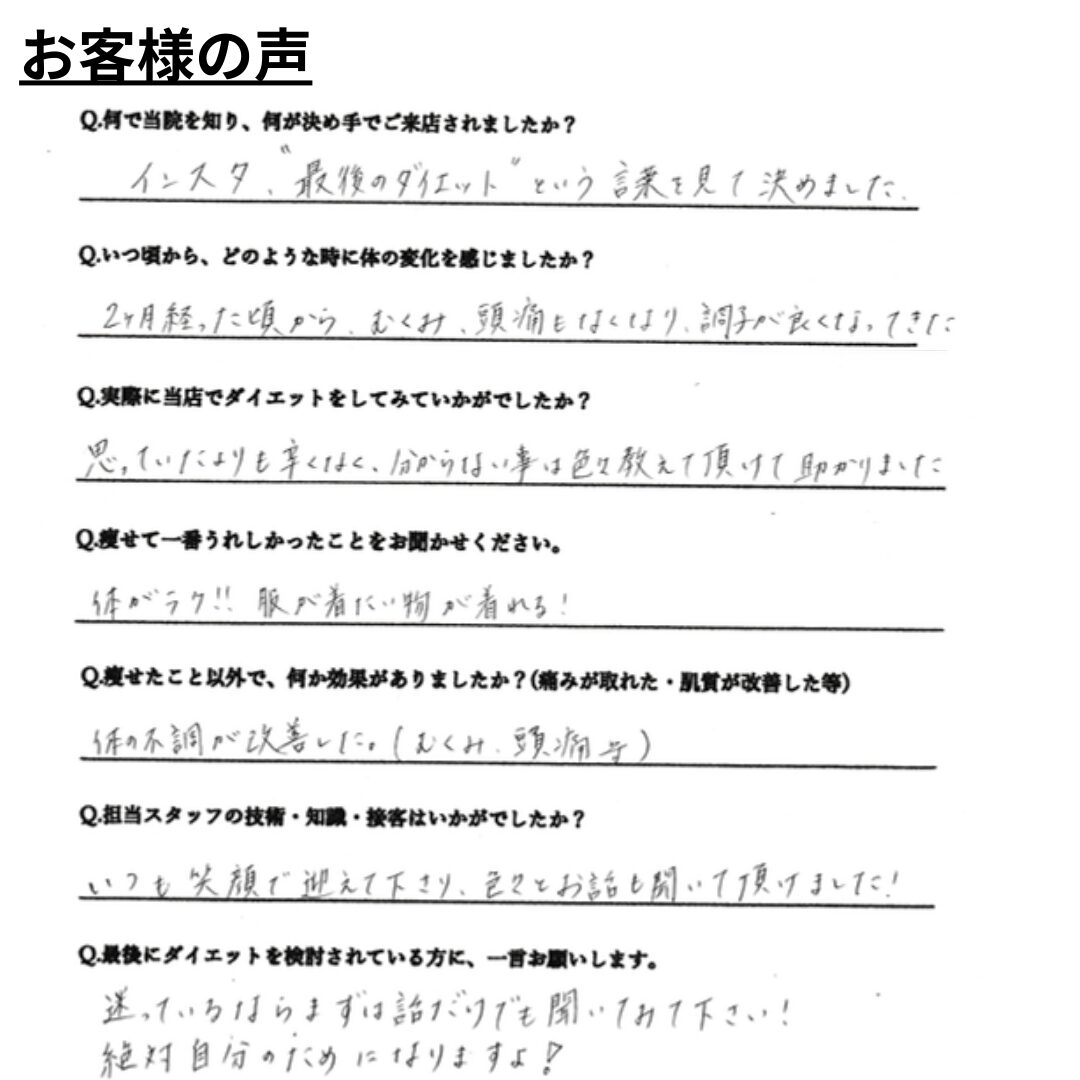 お客様の声
Q.何で当院を知り、何が決め手でご来店されましたか？
インスタ、"最後のダイエット"という言葉を見て決めました。
Q.いつ頃から、どのような時に体の変化を感じましたか？
2ヶ月経った頃から、むくみ、頭痛もなくなり、調子が良くなってきた
Q.実際に当店でダイエットをしてみていかがでしたか？
思っていたよりも辛くなく、分からない事は色々教えて頂けて助かりました
Q.痩せて一番うれしかったことをお聞かせください。
体がラク!! 服が着たい物が着れる!
Q.痩せたこと以外で、何か効果がありましたか？(痛みが取れた・肌質が改善した等)
体の不調が改善した。(むくみ、頭痛等)
Q.担当スタッフの技術・知識・接客はいかがでしたか？
いつも笑顔で迎えて下さり、色々とお話も聞いて頂けました!
Q.最後にダイエットを検討されている方に、一言お願いします。
迷っているならまずは話だけでも聞いてみて下さい!
絶対自分のためになりますよ!